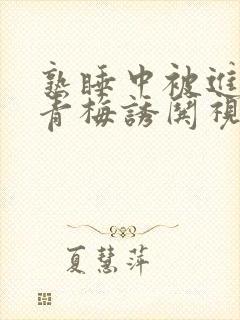 熟睡中被進
青梅誘関視
夏慧萍